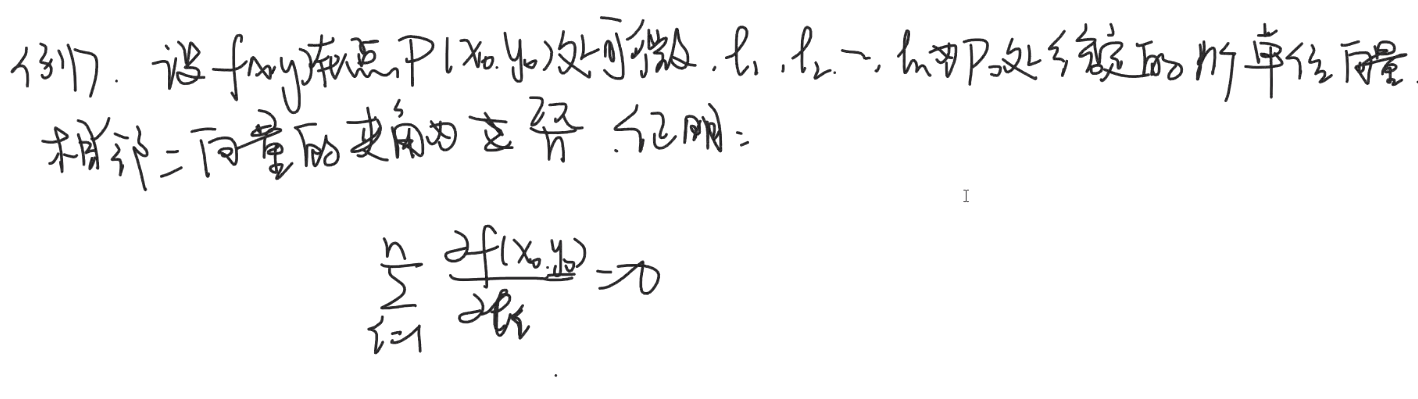 例7. 设f(x,y)在点P(x₀,y₀)处可微, l₁,l₂,…,lₙ为P₀处给定的n个单位向量.
相邻二向量的夹角为 2π/n .证明:
\sum_{i=1}^{n} \frac{∂f(x₀,y₀)}{∂l_i}=0